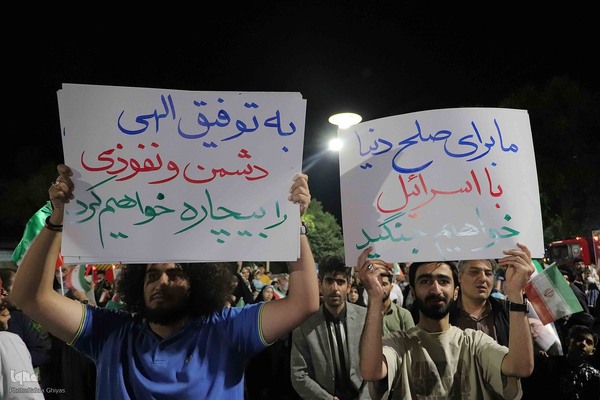 به توفیق الهی
دشمن و نفوذی
را بیچاره خواهیم کرد
ما برای صلح دنیا
با اسرائیل
خواهیم جنگید